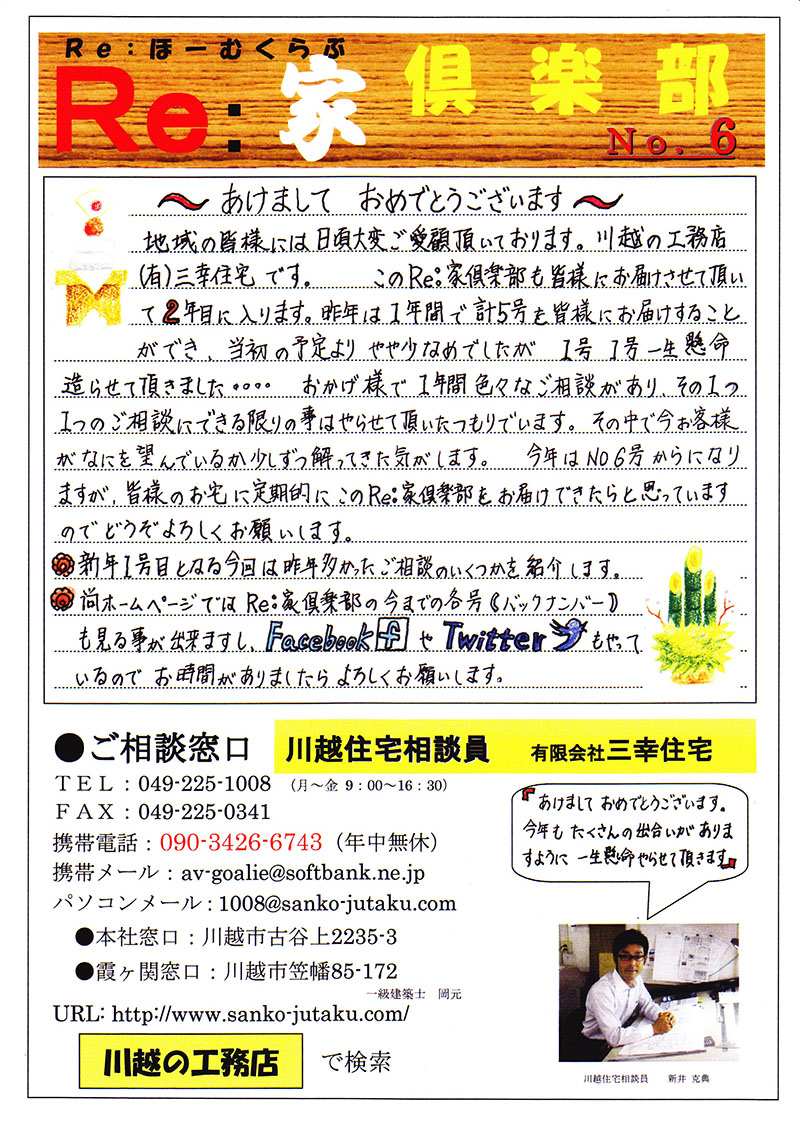 Re:ほーむくらぶ
Re:家倶楽部
No.6
～あけまして おめでとうございます～
地域の皆様には日頃大変ご愛顧頂いております。川越の工務店
(有)三幸住宅です。 このRe:家倶楽部も皆様にお届けさせて頂い
て2年目に入ります。昨年は1年間で計5号を皆様にお届けすること
ができ、当初の予定よりやや少なめでしたが 1号1号一生懸命
造らせて頂きました・・・・ おかげ様で1年間色々なご相談があり、その1つ
1つのご相談にできる限りの事はやらせて頂いたつもりでいます。その中で今お客様
がなにを望んでいるか少しずつ解ってきた気がします。 今年はNO6号からになり
ますが、皆様のお宅に定期的にこのRe:家倶楽部をお届けできたらと思っています
のでどうぞよろしくお願いします。
新年1号目となる今回は昨年多かったご相談のいくつかを紹介します。
尚ホームページではRe:家倶楽部の今までの各号《バックナンバー》
も見る事が出来ますし、Facebook f や Twitter もやって
いるので お時間がありましたら よろしくお願いします。
●ご相談窓口 川越住宅相談員 有限会社三幸住宅
TEL：049-225-1008 （月～金 9：00～16：30）
FAX：049-225-0341
携帯電話：090-3426-6743（年中無休）
携帯メール：av-goalie@softbank.ne.jp
パソコンメール：1008@sanko-jutaku.com
●本社窓口：川越市古谷上2235-3
●霞ヶ関窓口：川越市笠幡85-172
一級建築士 岡元
URL: http://www.sanko-jutaku.com/
川越の工務店 で検索
『あけまして おめでとうございます。
今年も たくさんの出合いがありま
すように 一生懸命やらせて頂きます』
川越住宅相談員 新井 克典